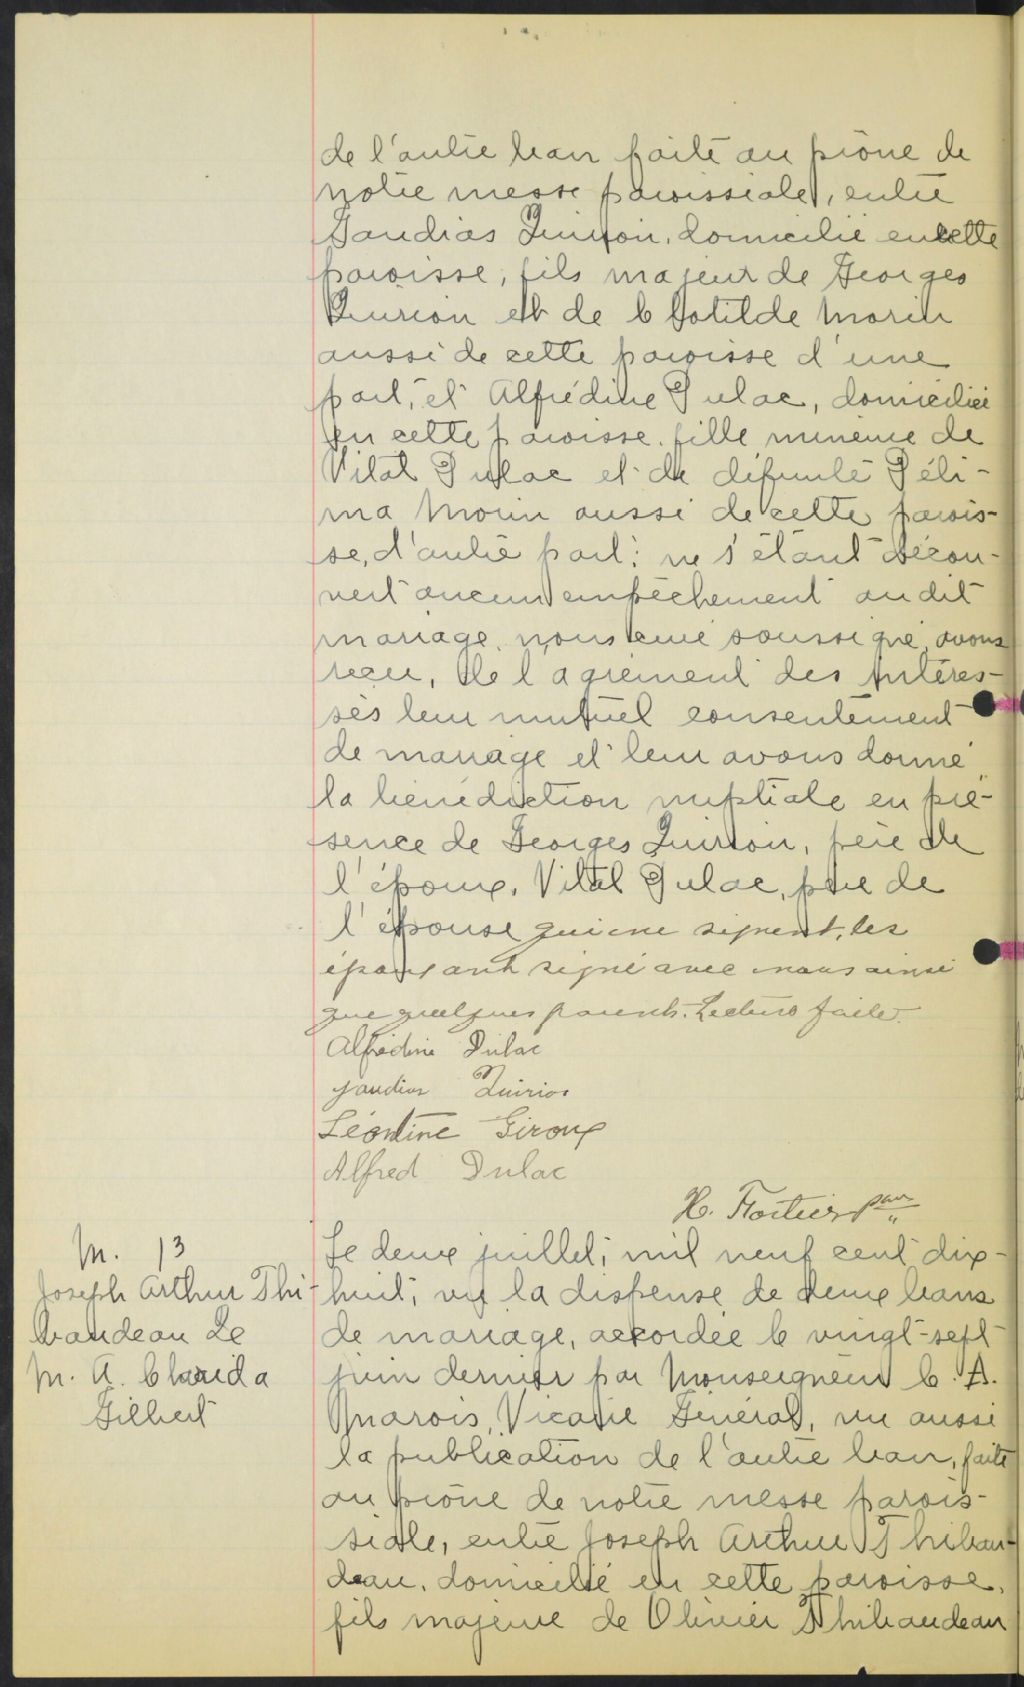 de l'autre ban faite au prône de
notre messe paroissiale, entre
Gaudias Quirion, domicilié en cette
paroisse, fils majeur de Georges
Quirion et de Clotilde Morin
aussi de cette paroisse d'une
part, et Alfrédine Dulac, domiciliée
en cette paroisse, fille mineure de
Vital Dulac et de défunte Déli-
ma Morin aussi de cette parois-
se, d'autre part: ne s'étant décou-
vert aucun empêchement au dit
mariage, nous curé soussigné, avons
reçu, de l'agrément des intéres-
sés leur mutuel consentement
de mariage et leur avons donné
la bénédiction nuptiale en pré-
sence de Georges Quirion, père de
l'époux, Vital Dulac, père de
l'épouse qui ne signent, les
époux ont signé avec nous ainsi
que quelques parents. Lecture faite.
Alfrédine Dulac
Gaudias Quirion
Léontine Giroux
Alfred Dulac
H. Fortier ptre
M. 13
Joseph Arthur Thi-
baudeau &
M. A. Clarida
Gilbert
Le deux juillet, mil neuf cent dix-
huit, vu la dispense de deux bans
de mariage, accordée le vingt-sept
juin dernier par Monseigneur C. A.
Marois, Vicaire Général, vu aussi
la publication de l'autre ban, faite
au prône de notre messe parois-
siale, entre Joseph Arthur Thibau-
deau, domicilié en cette paroisse,
fils majeur de Olivier Thibaudeau